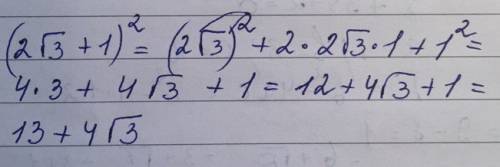 (2√3 + 1)² = (2√3)² + 2·2√3·1 + 1² =
4·3 + 4√3 + 1 = 12 + 4√3 + 1 =
13 + 4√3